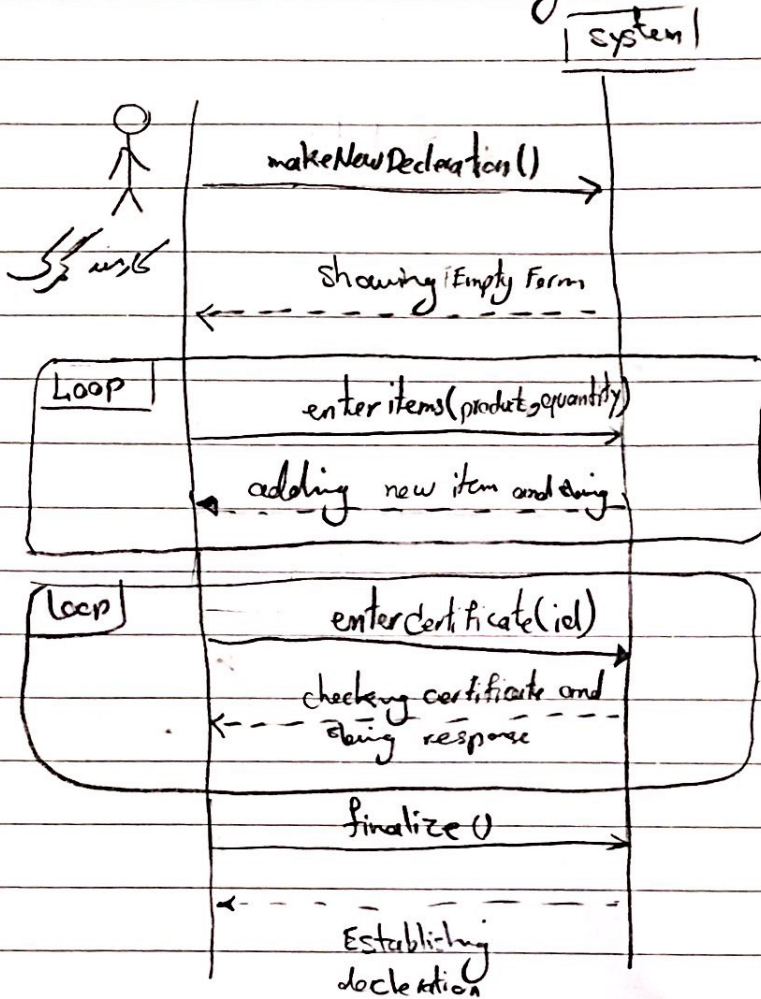 system
makeNewDecleration()
کارمند گمرک
Showing Empty Form
Loop
enter items(product, quantity)
adding new item and
Loop
enter certificate(id)
checking certificate and
response
finalize()
Establishing
decleration